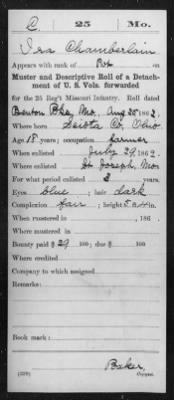 C. 25 Mo.
Ira Chamberlain
Appears with rank of Pvt on
Muster and Descriptive Roll of a Detach-
ment of U. S. Vols. forwarded
for the 25 Reg't Missouri Infantry. Roll dated
Benton Bks, Mo., Aug 28 1862.
Where born Sciota Co, Ohio
Age 18 years; occupation farmer
When enlisted July 29, 1862.
Where enlisted St. Joseph, Mo.
For what period enlisted 3 years.
Eyes blue; hair dark
Complexion fair; height 5 ft. 4 in.
When mustered in , 186 .
Where mustered in
Bounty paid $ 29 100; due $ 100
Where credited
Company to which assigned
Remarks:
Book mark:
Baker,
(339) Copyist.